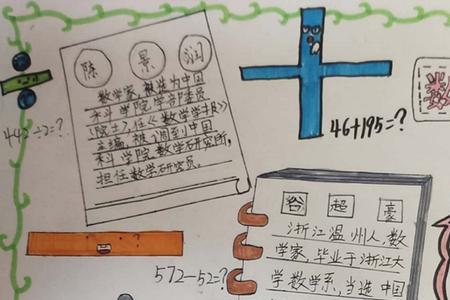 陈景润
数学家,被选为中国
科学院学部委员
(院士),任《数学学报》
主编,被调到中国
科学院数学研究所,
担任数学研究员。
442÷2=?
46+195=?
数
572-52=?
谷超豪
浙江温州人,数
学家,毕业于浙江大
学数学系,当选中国